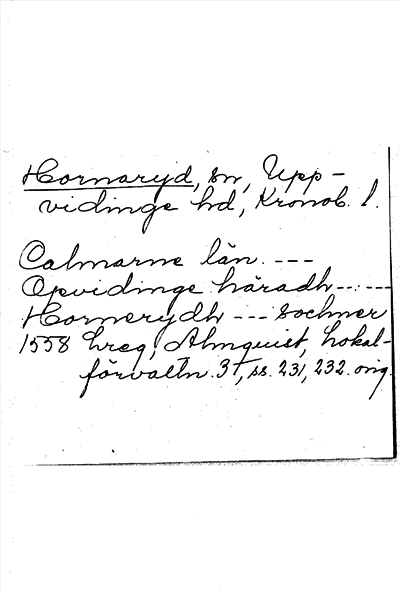 Hornaryd, sn, Upp-
vidinge hd, Kronob. l.
Calmarne län. ---
Opvidinge häradh-----
Hornerydh --- sochner
1558 hreg, Almquist, Lokal-
förvaltn. 3, ss. 231, 232. orig.